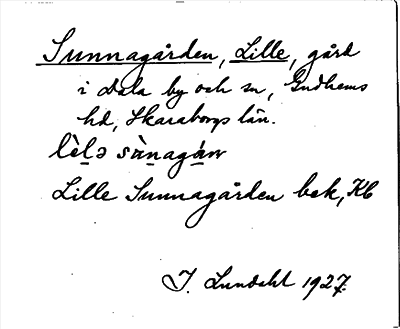 Sunnagården, Lille, gård
i Dala by och sn, Gudhems
hd, Skaraborgs län.
lè̱lə sà̱nagá̱ṇ
Lille Sunnagården bek, Kb
I. Lundahl 1927.